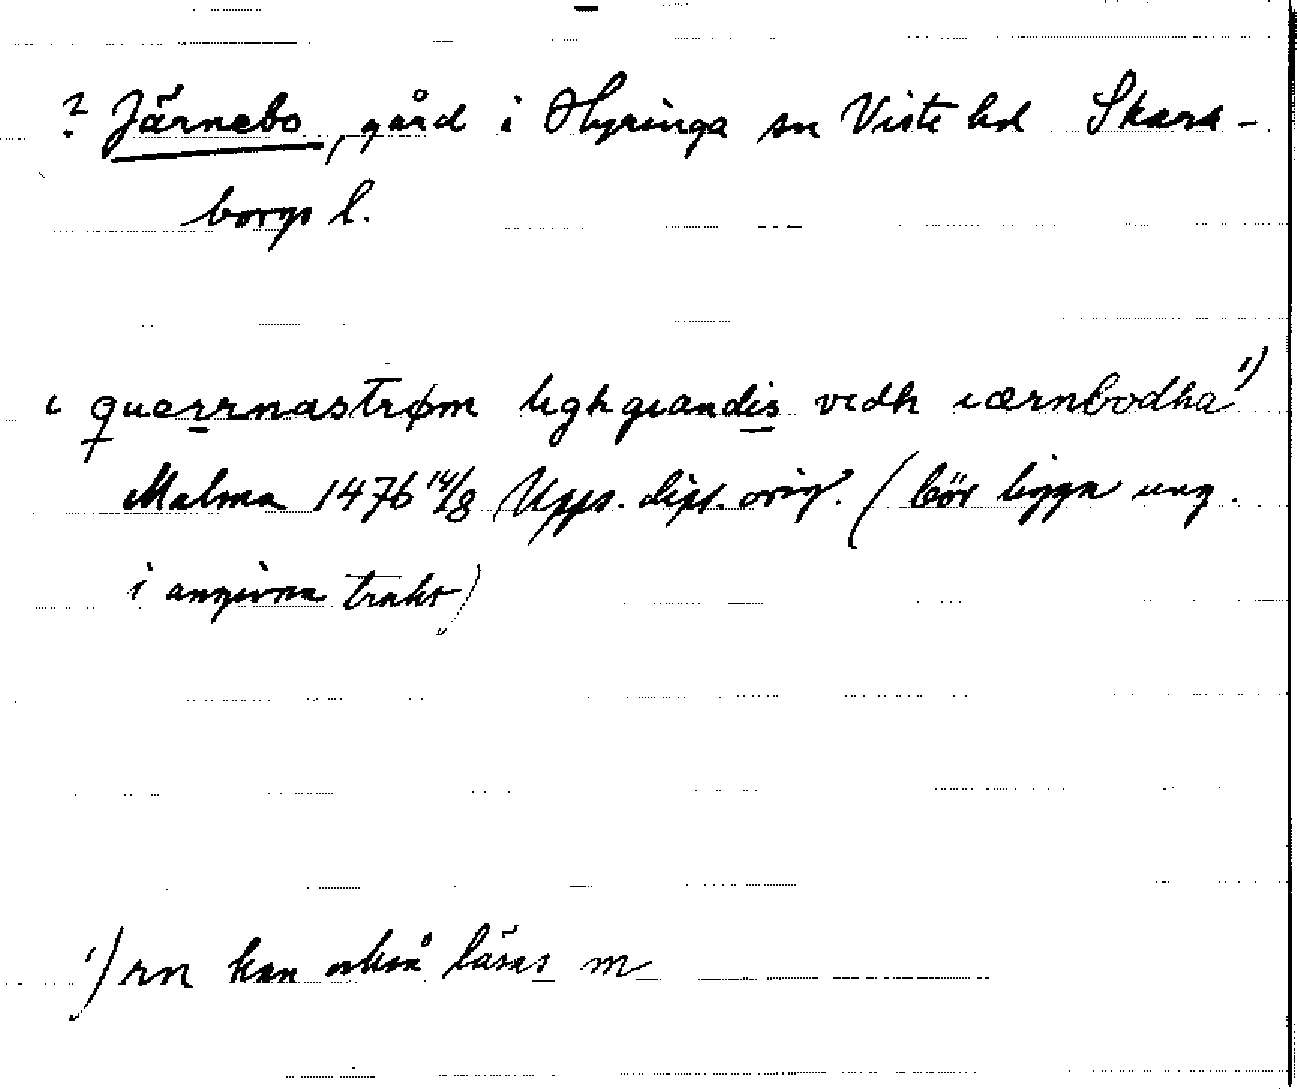 ? Järnebo, gård i Hyringa sn Viste hd Skara-
borgs l.
i querrnastrøm lighgiandis vedh iærnbodha 1)
Malma 1476 14/8 Upps. dipl. orig. (bör ligga ung.
i angivna trakt)
1) rn kan också läsas m